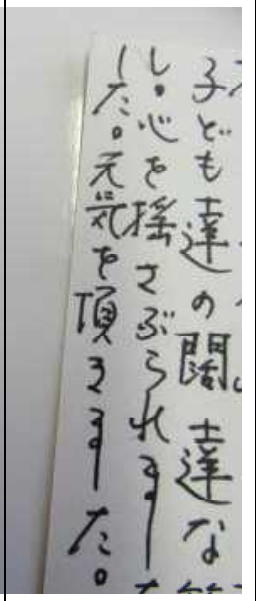 子ども達の闊達な
し。心を揺さぶられました
した。元気を頂きました。